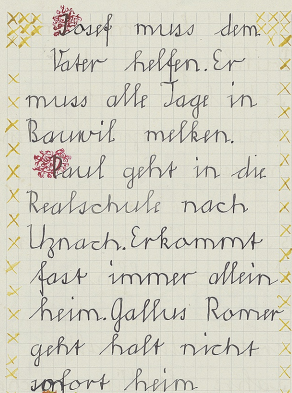 Josef muss dem
Vater helfen. Er
muss alle Tage in
Bauwil melken.
Paul geht in die
Realschule nach
Uznach. Er kommt
fast immer allein
heim. Gallus Romer
geht halt nicht
sofort heim